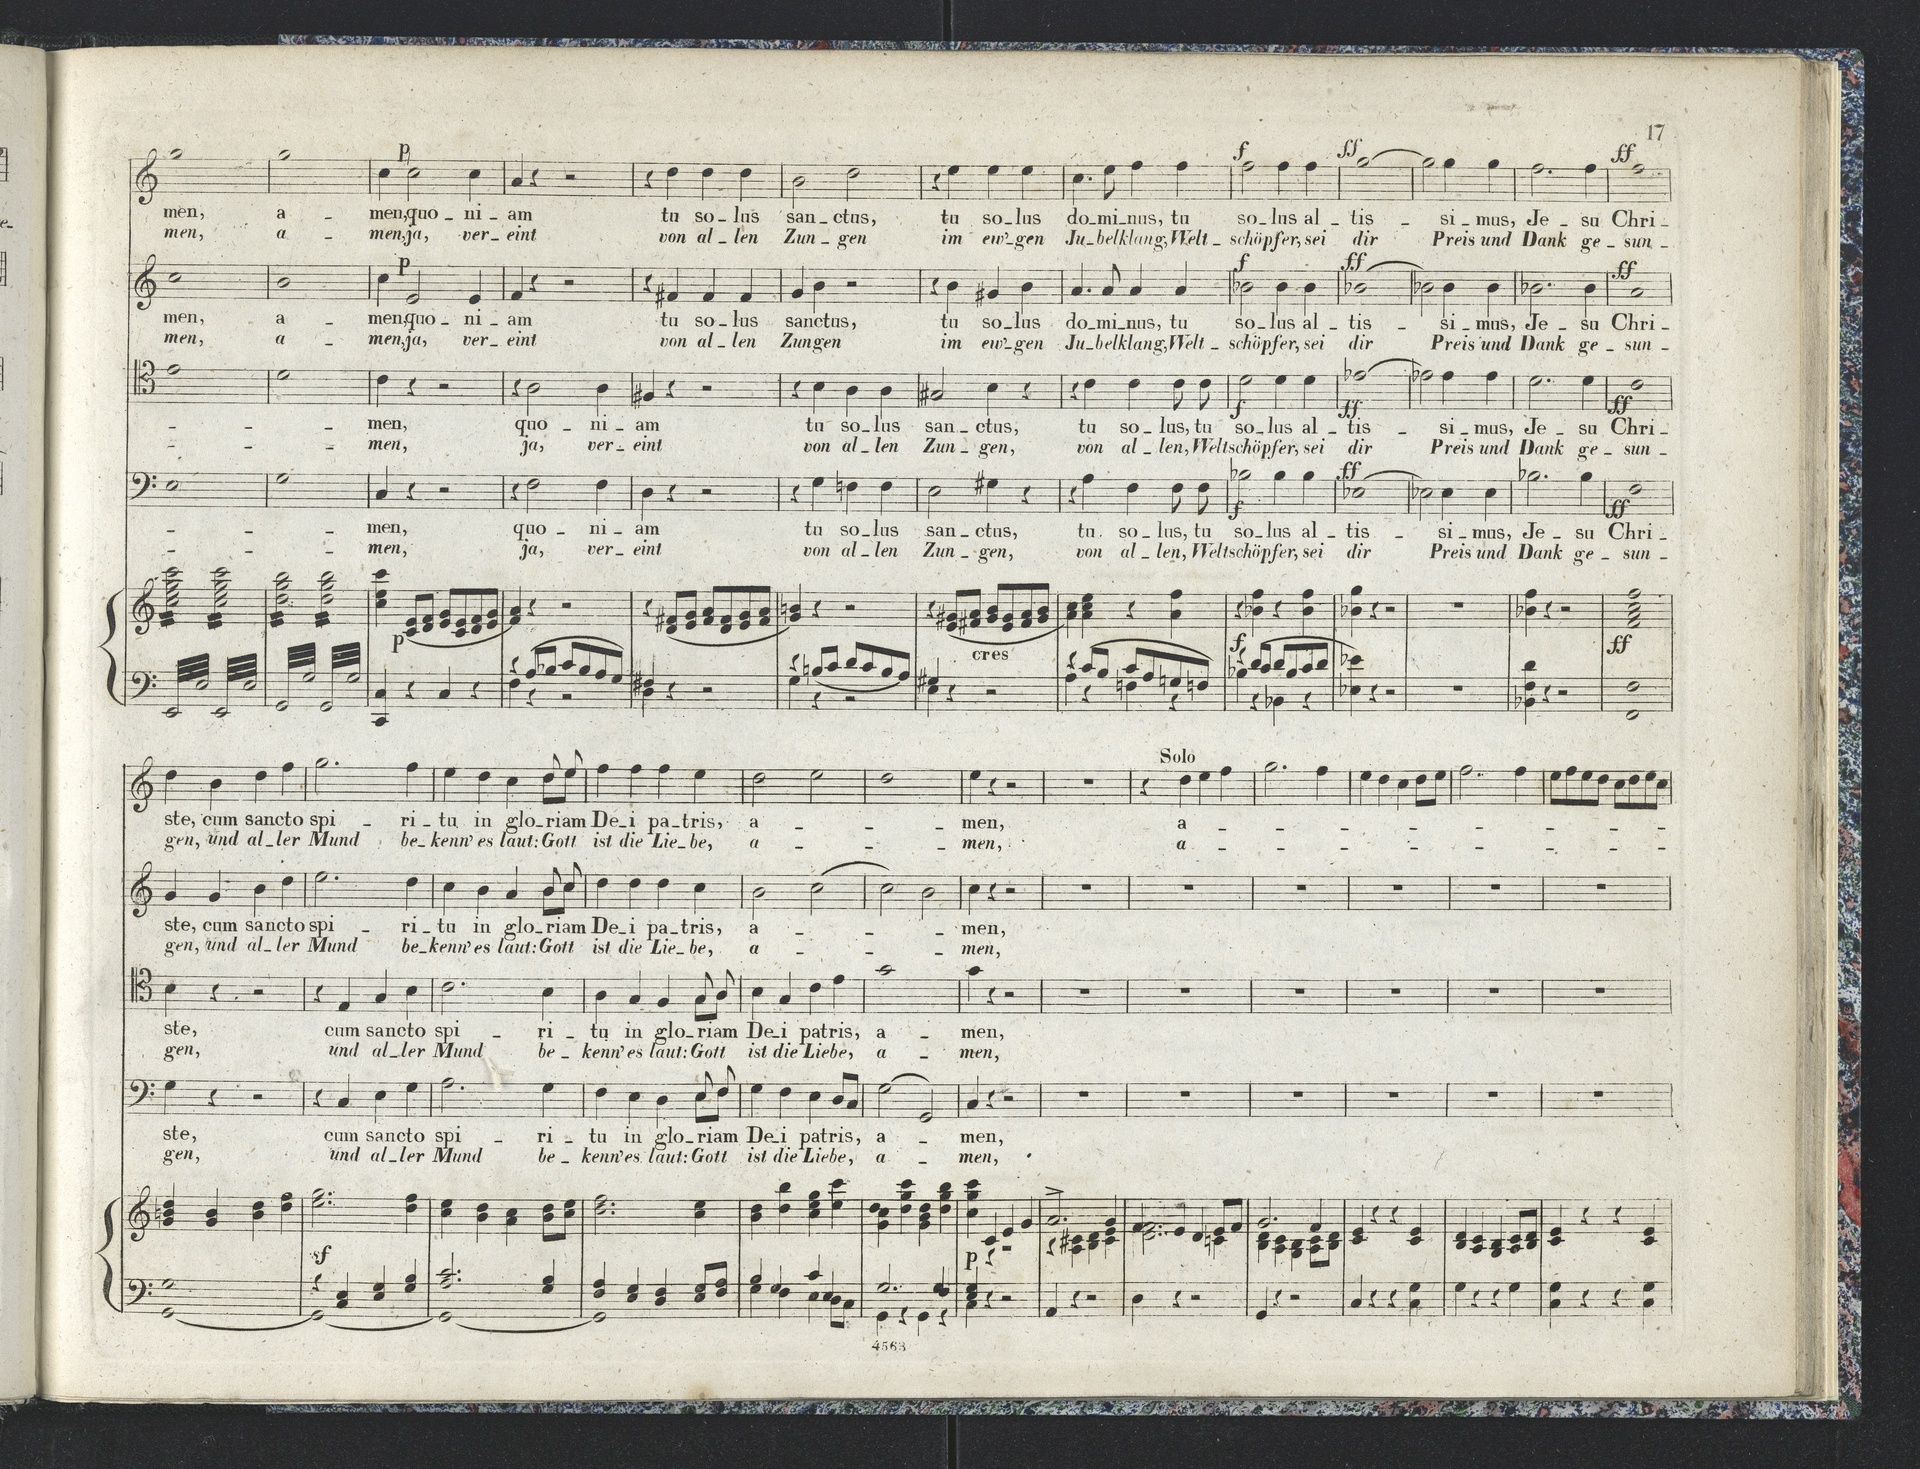 17
p f ff ff
men, a - men, quo - ni - am tu so - lus san - ctus, tu so - lus do - mi - nus, tu so - lus al - tis - si - mus, Je - su Chri -
men, a - men, ja, ver - eint von al - len Zun - gen im ew'- gen Ju - belklang, Welt - schöpfer, sei dir Preis und Dank ge - sun -
p f ff ff
men, a - men, quo - ni - am tu so - lus sanctus, tu so - lus do - mi - nus, tu so - lus al - tis - si - mus, Je - su Chri -
men, a - men, ja, ver - eint von al - len Zungen im ew'- gen Ju - belklang, Welt - schöpfer, sei dir Preis und Dank ge - sun -
f ff ff
- - men, quo - ni - am tu so - lus san - ctus, tu so - lus, tu so - lus al - tis - si - mus, Je - su Chri -
- - men, ja, ver - eint von al - len Zun - gen, von al - len, Weltschöpfer, sei dir Preis und Dank ge - sun -
f ff ff
- - men, quo - ni - am tu so - lus san - ctus, tu so - lus, tu so - lus al - tis - si - mus, Je - su Chri -
- - men, ja, ver - eint von al - len Zun - gen, von al - len, Weltschöpfer, sei dir Preis und Dank ge - sun -
p cres f ff
Solo
ste, cum sancto spi - ri - tu in glo - riam De - i pa - tris, a - - - men, a - - - - - - - - -
gen, und al - ler Mund be - kenn' es laut: Gott ist die Lie - be, a - - - men, a - - - - - - - - -
ste, cum sancto spi - ri - tu in glo - riam De - i pa - tris, a - - - men,
gen, und al - ler Mund be - kenn' es laut: Gott ist die Lie - be, a - - - men,
ste, cum sancto spi - ri - tu in glo - riam De - i patris, a - men,
gen, und al - ler Mund be - kenn' es laut: Gott ist die Liebe, a - men,
ste, cum sancto spi - ri - tu in glo - riam De - i patris, a - men,
gen, und al - ler Mund be - kenn' es laut: Gott ist die Liebe, a - men,
sf p
4563